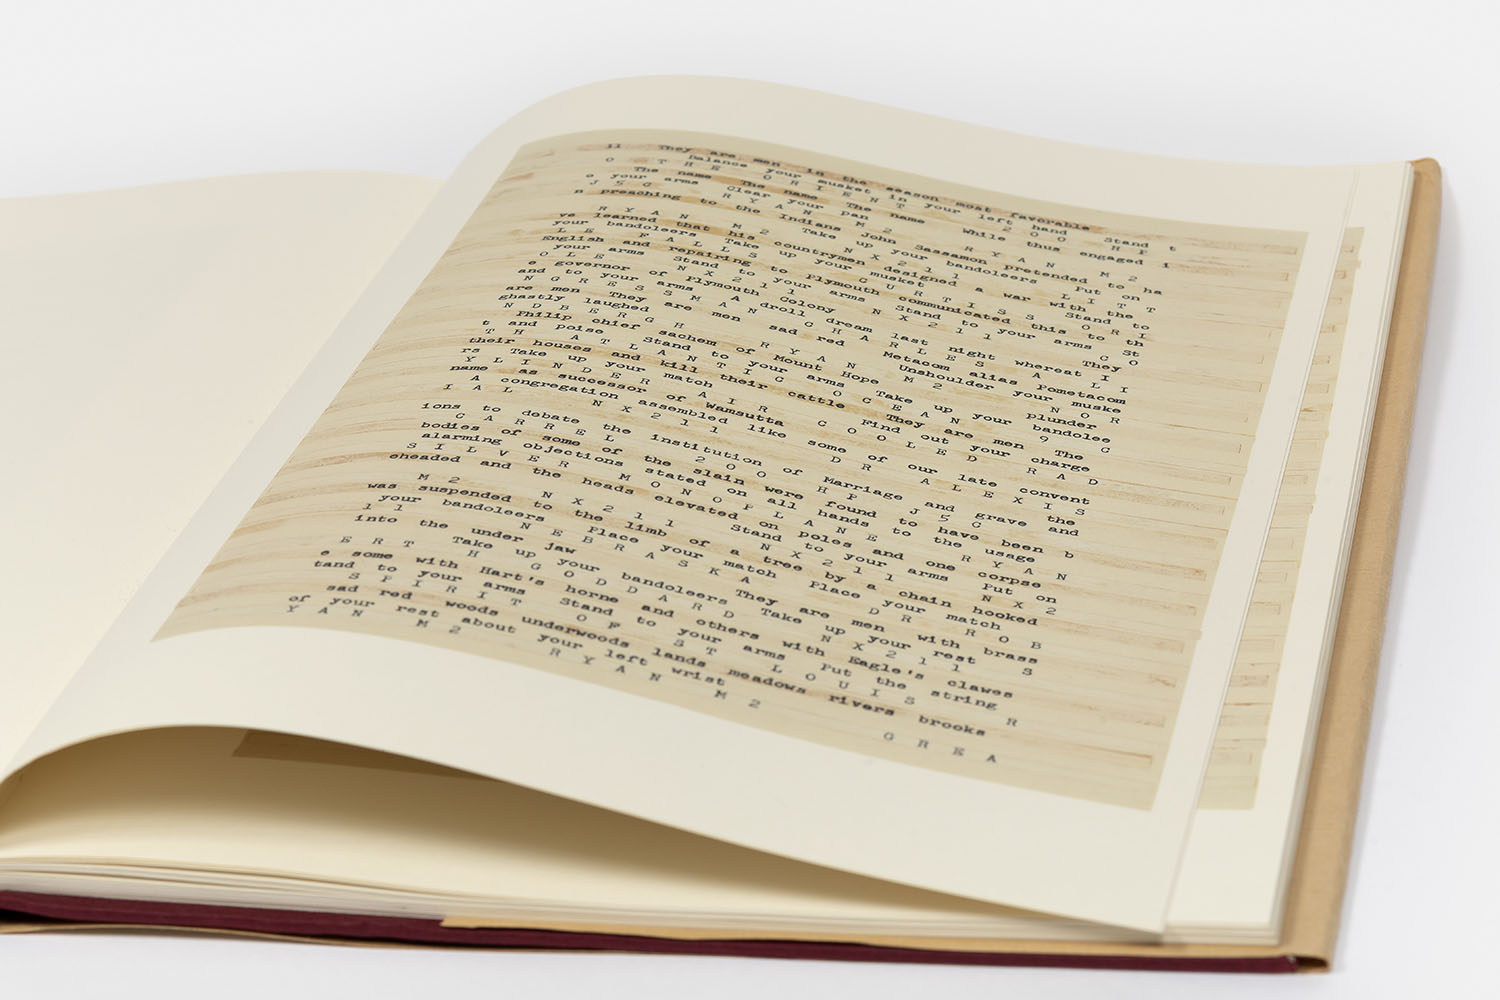 11 They are men in the season most favorable
Balance your musket in your left hand Stand t
O T H E O R I E N T 2 0 0 H P
The name The name The name While thus engaged i
o your arms Clear your pan
J 5 C R Y A N M 2 R Y A N M 2
n preaching to the Indians John Sassamon pretended to ha
Take up your bandoleers Put on
R Y A N M 2 N X 2 1 1 L I T T
ve learned that his countrymen designed a war with the
your bandoleers Take up your musket Stand to
L E F A L L S C U R T I S S O R I
English and repairing to Plymouth communicated this to th
your arms Stand to your arms Stand to your arms St
O L E N X 2 1 1 N X 2 1 1 C O
e governor of Plymouth Colony They
and to your arms A droll dream last night whereat I
N G R E S S M A N C H A R L E S A L I
are men They are men sad red Metacom alias Pometacom
ghastly laughed Unshoulder your muske
N D B E R G H R Y A N M 2 N O R
Philip chief sachem of Mount Hope plunder
t and poise Stand to your arms Take up your bandolee
T H A T L A N T I C O C E A N 9 C
their houses and kill their cattle They are men The
rs Take up your match Find out your charge
Y L I N D E R A I R C O O L E D R A D
name as successor of Wamsutta
A congregation assembled like some of our late convent
I A L N X 2 1 1 D R A L E X I S
the
ions to debate the institution of Marriage and grave and
C A R R E L 2 0 0 H P J 5 C
bodies of some of the slain were found to have been b
alarming objections stated on all hands to the usage
S I L V E R M O N O P L A N E R Y A N
eheaded and the heads elevated on poles and one corpse
Stand to your arms Put on
M 2 N X 2 1 1 N X 2 1 1 N X 2
was suspended to the limb of a tree by a chain hooked
your bandoleers Place your match Place your match
1 1 N E B R A S K A D R R O B
into the under jaw They are men with brass
Take up your bandoleers Take up your rest
E R T H G O D D A R D N X 2 1 1 S
e some with Hart's horne and others with Eagle's clawes
tand to your arms Stand to your arms Put the string
S P I R I T O F S T L O U I S R
sad red woods underwoods lands meadows rivers brooks
of your rest about your left wrist
Y A N M 2 R Y A N M 2 G R E A